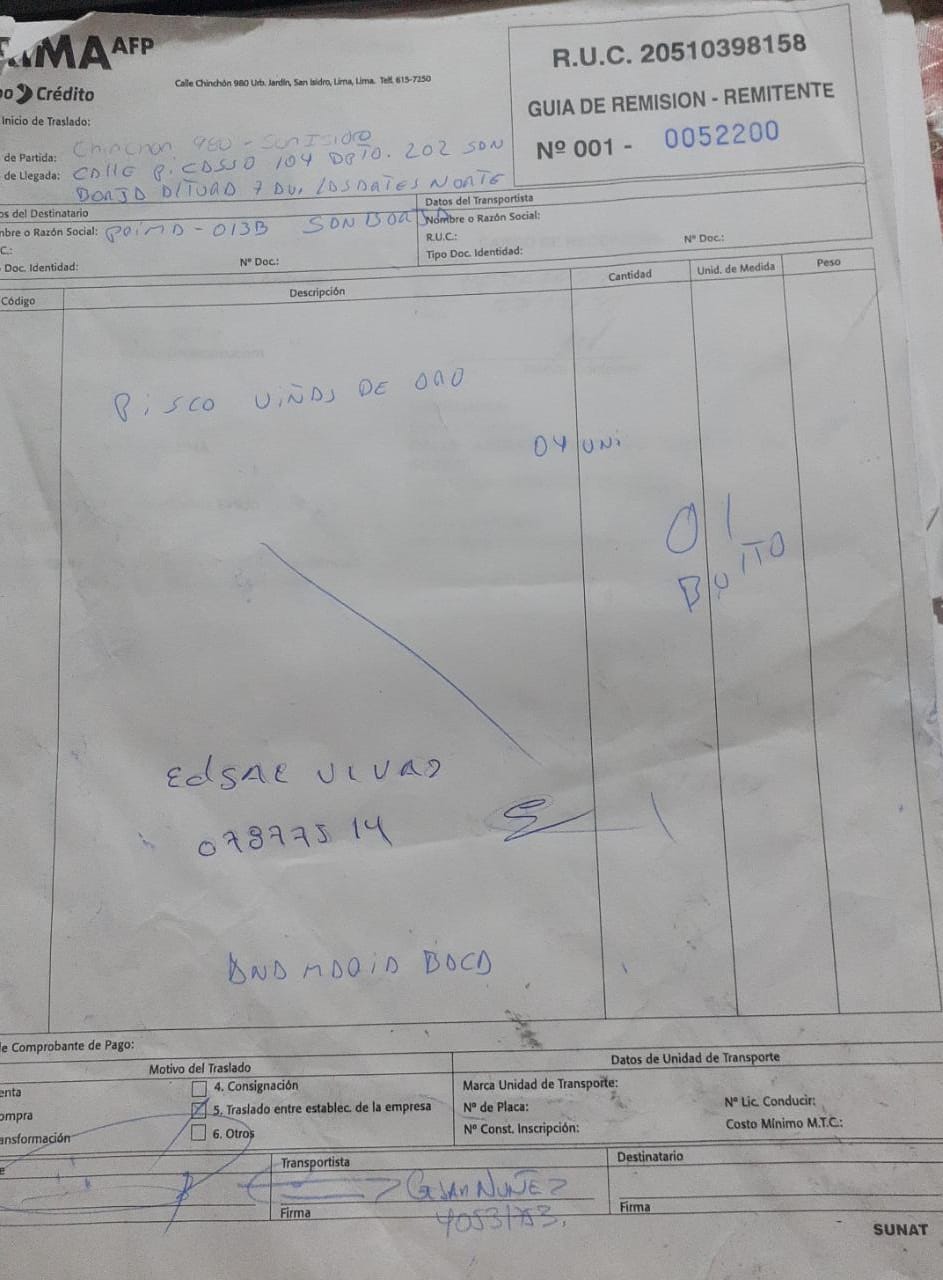 IMA AFP
R.U.C. 20510398158
Calle Chinchón 980 Urb. Jardín, San Isidro, Lima, Lima. Telf. 615-7250
po Crédito
GUIA DE REMISION - REMITENTE
Nº 001 - 0052200
Inicio de Traslado:
de Partida: Chinchon 980 - San Isidro
de Llegada: CALLE P. CASSO 104 DPTO. 202 SAN
BORJA ALTURA 7 AV. LAS ARTES NORTE
os del Destinatario
Datos del Transportista
mbre o Razón Social: PRIMA - 013B SAN BORJA
Nombre o Razón Social:
C.:
R.U.C.:
Doc. Identidad: Nº Doc.:
Tipo Doc. Identidad: Nº Doc.:
Código Descripción Cantidad Unid. de Medida Peso
PISCO VIÑAS DE ORO
04 UNI
01
BULTO
EDGAR VIVAS
07877514
ANA MARIA BACA
de Comprobante de Pago:
Motivo del Traslado
Datos de Unidad de Transporte
enta
4. Consignación
Marca Unidad de Transporte:
ompra
5. Traslado entre establec. de la empresa
Nº de Placa:
Nº Lic. Conducir:
ansformación
6. Otros
Nº Const. Inscripción:
Costo Mínimo M.T.C.:
e
Transportista
Destinatario
NUÑEZ
Firma
Firma
SUNAT